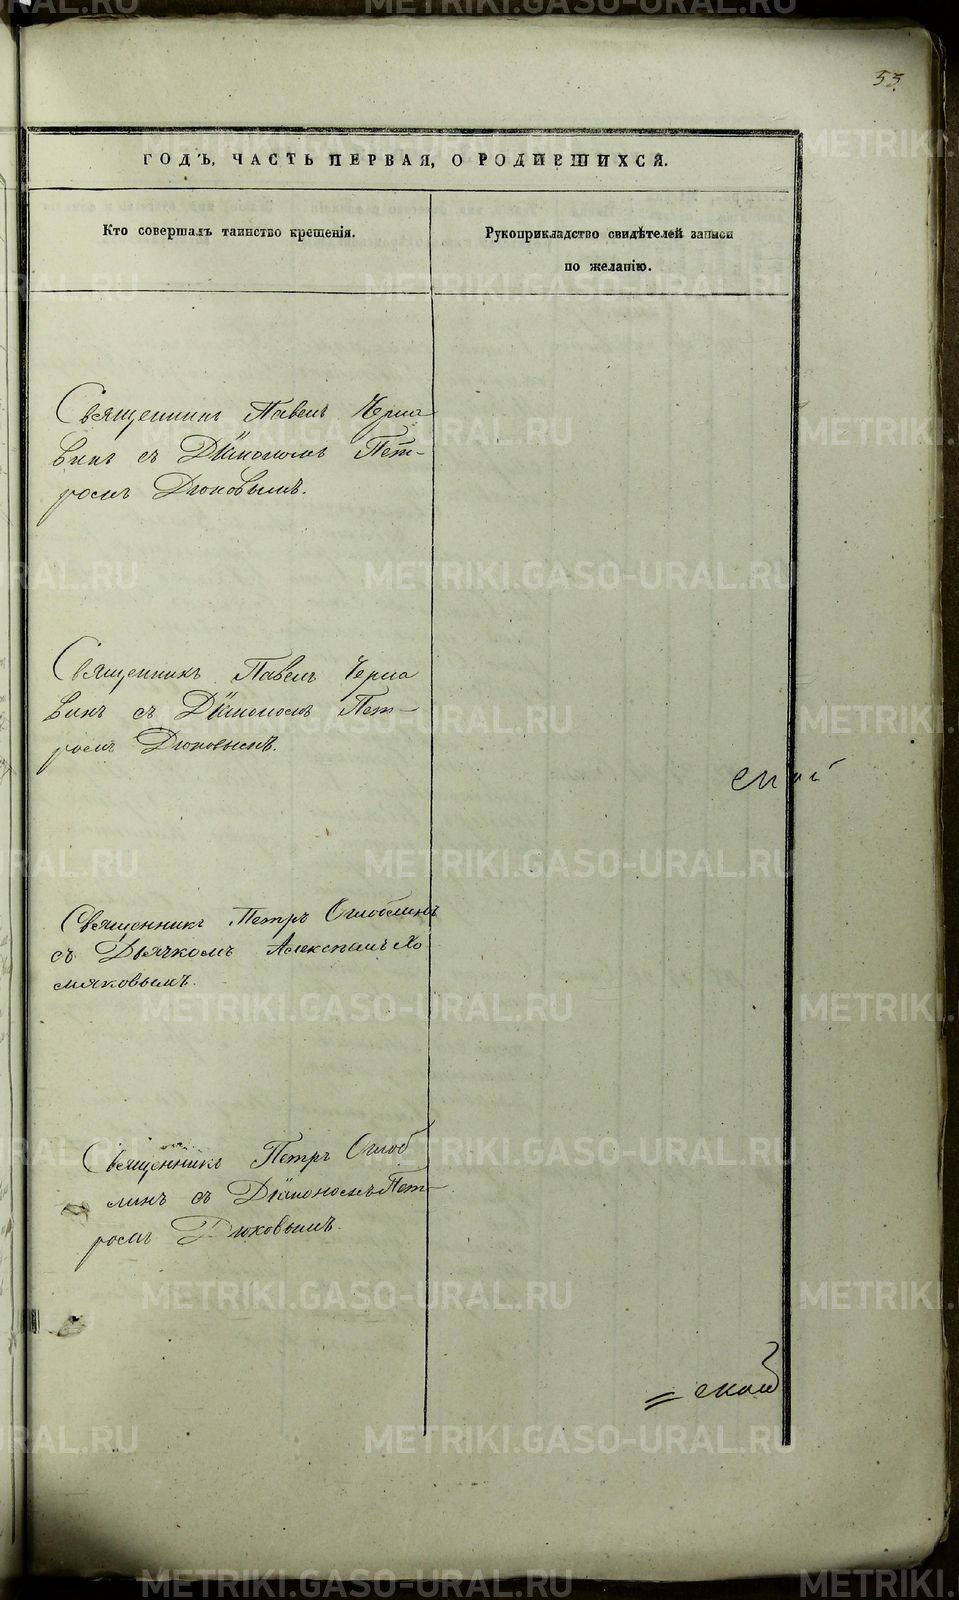 53
ГОДЪ, ЧАСТЬ ПЕРВАЯ, О РОДИВШИХСЯ.
Кто совершалъ таинство крещенія.
Рукоприкладство свидѣтелей записи
по желанію.
Священникъ Павелъ Черна
винъ съ Діакономъ Пет-
ромъ Дюковымъ.
Священникъ Павелъ Черна
винъ съ Діакономъ Пет-
ромъ Дюковымъ.
Священникъ Петръ Оглоблинъ
съ Дьячкомъ Алексѣемъ Хо
мяковымъ.
Священникъ Петръ Оглоб
линъ съ Діакономъ Пет-
ромъ Дюковымъ.
= ской
METRIKI.GASO-URAL.RU